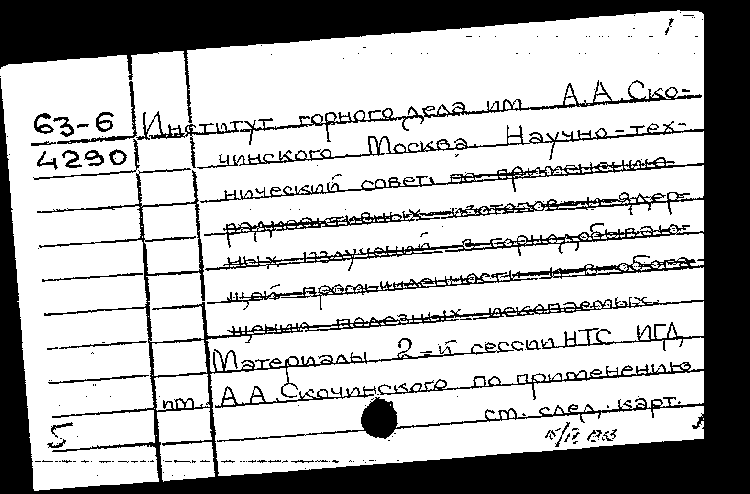 1
63-6 Институт горного дела им А.А.Ско-
4290 чинского Москва. Научно-тех-
нический совет по применению
радиоактивных изотопов и ядер-
ных излучений в горнодобываю-
щей промышленности и в обога-
щении полезных ископаемых.
Материалы 2-й сессии НТС ИГД
им. А.А.Скочинского по применению
ст. след. карт.
5